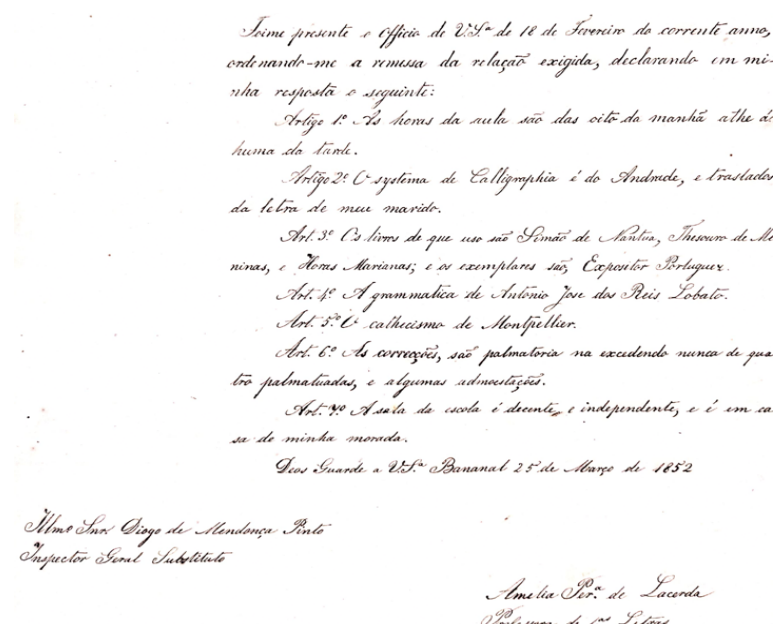 Foi-me presente o Officio de V.S.ª de 18 de Fevereiro do corrente anno,
ordenando-me a remessa da relação exigida, declarando em mi-
nha resposta o seguinte:
Artigo 1º As horas da aula são das oito da manhã athe á
huma da tarde.
Artigo 2º O systema de Calligraphia é do Andrade, e traslados
da letra de meu marido.
Art. 3º Os livros de que uso são Simão de Nantua, Thesouro de Me
ninas, e Horas Marianas; e os exemplares são, Expositor Portuguez.
Art. 4º A grammatica de Antonio Jose dos Reis Lobato.
Art. 5º O cathecismo de Montpellier.
Art. 6º As correcções, são palmatoria na excedendo nunca de qua
tro palmatuadas, e algumas admoestações.
Art. 7º A sala da escola é decente, e independente, e é em ca
sa de minha morada.
Deos Guarde a V.S.ª Bananal 25 de Março de 1852
Illmo Snr. Diogo de Mendonça Pinto
Inspector Geral Substituto
Amelia Per.ª de Lacerda
Professora de 1.as Letras